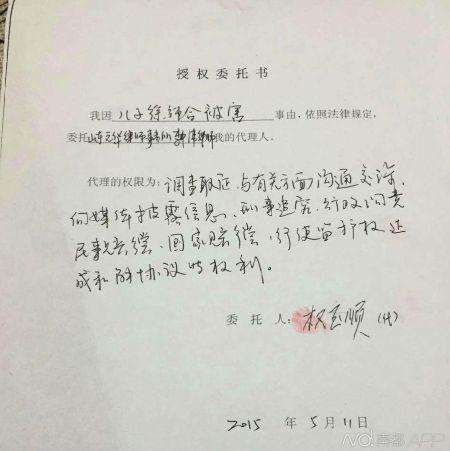 授权委托书
我因 儿子徐纯合被害 事由，依照法律规定，
委托 山东 律师事务所 律师 我的代理人。
代理的权限为：调查取证、与有关方面沟通交涉、
向媒体披露信息、刑事追究、行政问责
民事赔偿、国家赔偿、行使监护权、达
成和解协议等权利。
委托人：权玉顺（代）
2015 年 5月 11日
N0!南都APP